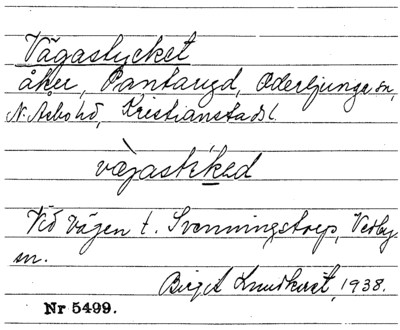 Vägastycket
åker, Pantaryd, Oderljunga sn,
N. Åsbo hd, Kristianstads l.
vägastikəd
Vid vägen t. Svenningstorp, Vedby
sn.
Birgit Lundkvist, 1938.
Nr 5499.